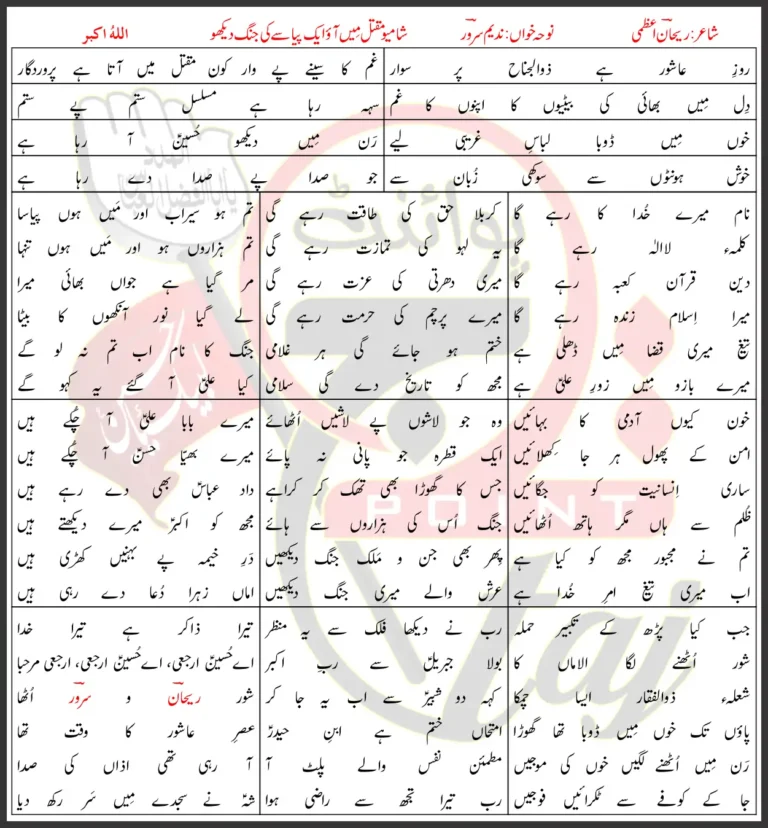 شاعر: ریحان اعظمی
نوحہ خواں: ندیم سرور
شامیو مقتل میں آؤ ایک پیاسے کی جنگ دیکھو
اللہُ اکبر
روزِ عاشور ہے ذوالجناح پر سوار
غم کا سینے پے وار کون مقتل میں آتا ہے پروردگار
دِل مِیں بھائی کی بیٹیوں کا اپنوں کا غم
سہہ رہا ہے مسلسل ستم پے ستم
خوں مِیں ڈوبا لباسِ غریبی لیے
رَن مِیں دیکھو حُسینؑ آ رہا ہے
خوش ہونٹوں سے سوکھی زُبان سے
جو صدا پے صدا دے رہا ہے
نام میرے خُدا کا رہے گا
کلمہء لاالہ رہے گا
دین قرآن کعبہ رہے گا
میرا اِسلام زندہ رہے گا
تیغ میری قضا مِیں ڈھلی ہے
میرے بازو مِیں زورِ علیؑ ہے
کربلا حق کی طاقت رہے گی
یہ لہو کی تمازت رہے گی
میری دھرتی کی عزت رہے گی
میرے پرچم کی حرمت رہے گی
ختم ہو جائے گی ہر غلامی
مجھ کو تاریخ دے گی سلامی
تم ہو سیراب اور مَیں ہوں پیاسا
تم ہزاروں ہو اور مَیں ہوں تنہا
مر گیا ہے جواں بھائی میرا
لے گیا نور آنکھوں کا بیٹا
جنگ کا نام اب تم نہ لو گے
کیا علیؑ آ گئے یہ کہو گے
خون کیوں آدمی کا بہائیں
امن کے پھول ہر جا کِھلائیں
ساری اِنسانیت کو جگائیں
ظُلم سے ہاں مگر ہاتھ اُٹھائیں
تم نے مجبور مجھ کو کیا ہے
اب میری تیغ امرِ خُدا ہے
وہ جو لاشوں پے لاشیں اُٹھائے
ایک قطرہ جو پانی نہ پائے
جس کا گھوڑا بھی تھک کر کراہے
جنگ اُس کی ہزاروں سے ہائے
پھر بھی جن و ملک جنگ دیکھیں
عرش والے میری جنگ دیکھیں
میرے بابا علیؑ آ چُکے ہیں
میرے بھیّا حسنؑ آ چُکے ہیں
داد عباسؑ بھی دے رہے ہیں
مجھ کو اکبرؑ میرے دیکھتے ہیں
دَرِ خیمہ پے بہنیں کھڑی ہیں
اماں زہرا دُعا دے رہی ہیں
جب کیا پڑھ کے تکبیر حملہ
شور اُٹھنے لگا الاماں کا
شعلہء ذوالفقار ایسا چمکا
پاؤں تک خوں مِیں ڈوبا تھا گھوڑا
رَن مِیں اُٹھنے لگیں خوں کی موجیں
جا کے کوفے سے ٹکرائیں فوجیں
رب نے دیکھا فلک سے یہ منظر
بولا جبریلؑ سے ربِ اکبر
کہہ دو شبیرؑ سے اب یہ جا کر
امتحاں ختم ہے ابنِ حیدرؑ
مطمئن نفس والے پلٹ آ
رب تیرا تجھ سے راضی ہوا
تیرا ذاکر ہے تیرا خدا
اے حُسینؑ ارجعی، اے حُسینؑ ارجعی، ارجعی مرحبا
شور ریحان و سرور اُٹھا
عصرِ عاشور کا وقت تھا
آ رہی تھی اذاں کی صدا
شہؑ نے سجدے مِیں سَر رکھ دیا
پوائنٹ
POINT
taj